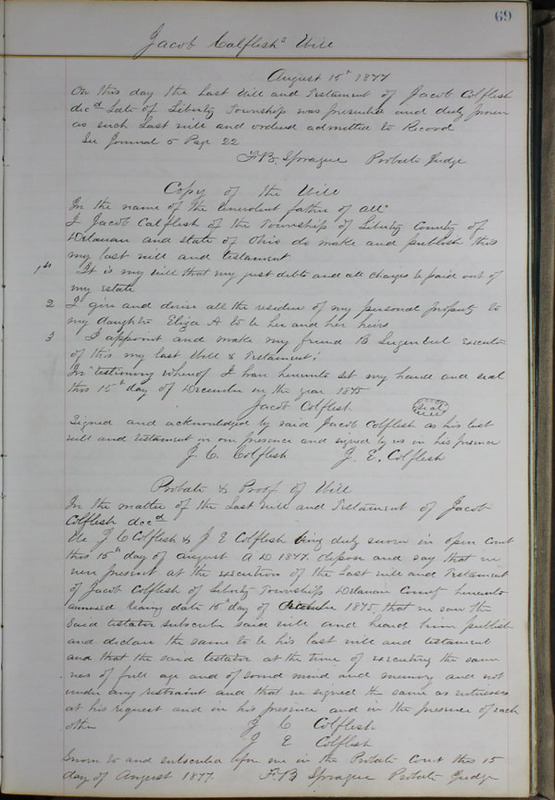 69
Jacob Colflesh's Will
August 15th 1877
On this day the Last Will and Testament of Jacob Colflesh
decd Late of Liberty Township was presented and duly proven
as such Last will and ordered admitted to Record
See Journal 5 Page 22
F.B. Sprague Probate Judge
Copy of the Will
In the name of the benevolent father of all:
I Jacob Colflesh of the Township of Liberty County of
Delaware and state of Ohio do make and publish this
my last will and testament
1st It is my will that my just debts and all charges be paid out of
my estate
2 I give and devise all the residue of my personal property to
my daughter Eliza A to be her and her heirs
3 I appoint and make my friend B executor
of this my last Will & Testament:
In testimony whereof I have hereunto set my hand and seal
this 15th day of December in the year 1875
Jacob Colflesh Seal
Signed and acknowledged by said Jacob Colflesh as his last
will and testament in our presence and signed by us in his presence
J. C. Colflesh J. E. Colflesh
Probate & Proof of Will
In the matter of the Last will and Testament of Jacob
Colflesh decd
We J C Colflesh & J E Colflesh being duly sworn in open court
this 15th day of august A D 1877. depose and say that we
were present at the execution of the Last will and Testament
of Jacob Colflesh of Liberty Township, Delaware County hereunto
annexed bearing date 15 day of December 1875, that we saw the
said testator subscribe said will and heard him publish
and declare the same to be his last will and testament
and that the said testator at the time of executing the same
was of full age and of sound mind and memory and not
under any restraint and that we signed the same as witnesses
at his request and in his presence and in the presence of each
other J C Colflesh
J E Colflesh
Sworn to and subscribed before me in the Probate Court this 15
day of August 1877. F.B Sprague Probate Judge